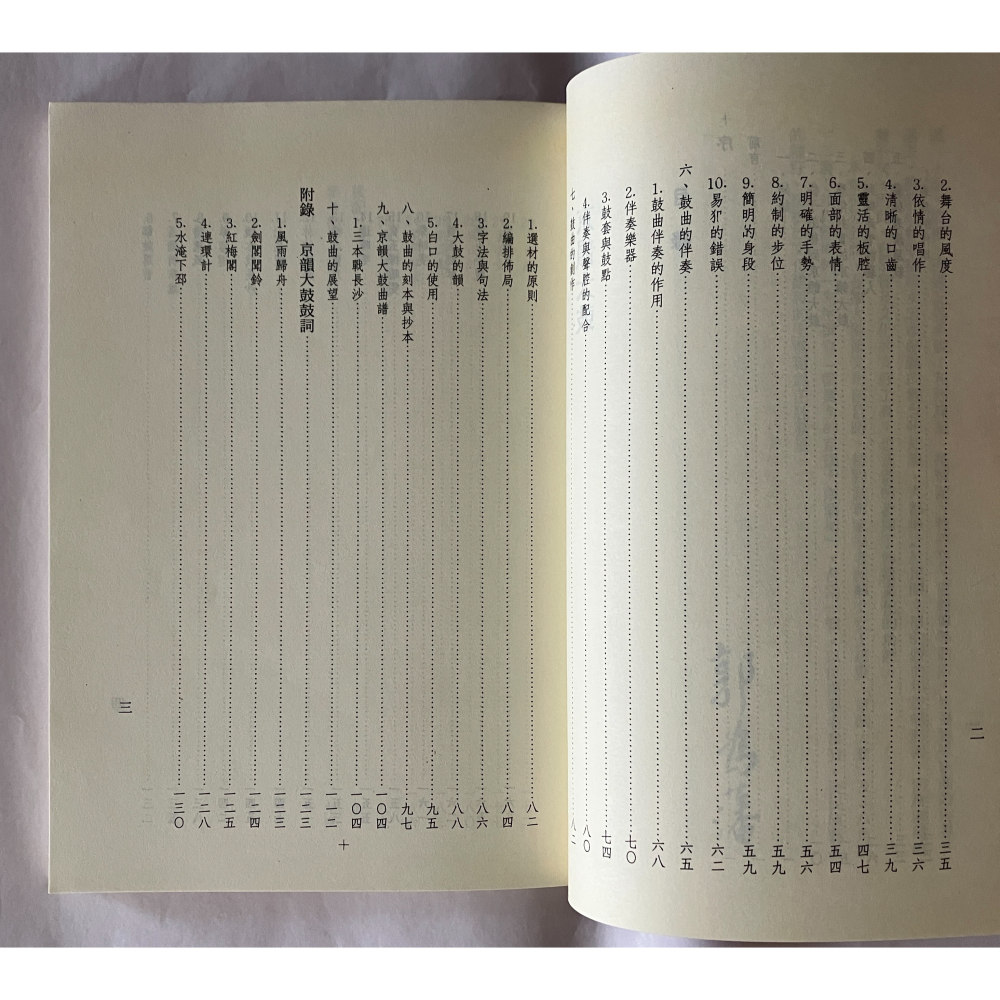 2.舞台的風度 三五
3.依情的唱作 三六
4.清晰的口齒 三九
5.靈活的板腔 四七
6.面部的表情 五四
7.明確的手勢 五六
8.約制的步位 五九
9.簡明的身段 五九
10.易犯的錯誤 六二
六、鼓曲的伴奏 六五
1.鼓曲伴奏的作用 六八
2.伴奏樂器 七〇
3.鼓套與鼓點 七四
4.伴奏與聲腔的配合 八〇
七、鼓曲的創作 八二
二
1.選材的原則 八二
2.編排佈局 八四
3.字法與句法 八六
4.大鼓的韻 八八
5.白口的使用 九五
八、鼓曲的刻本與抄本 九七
九、京韻大鼓曲譜 一〇四
1.三本戰長沙 一〇四
十、鼓曲的展望 一一二
附錄 京韻大鼓鼓詞 一二三
1.風雨歸舟 一二三
2.劍閣聞鈴 一二四
3.紅梅閣 一二五
4.連環計 一二八
5.水淹下邳 一三〇
三